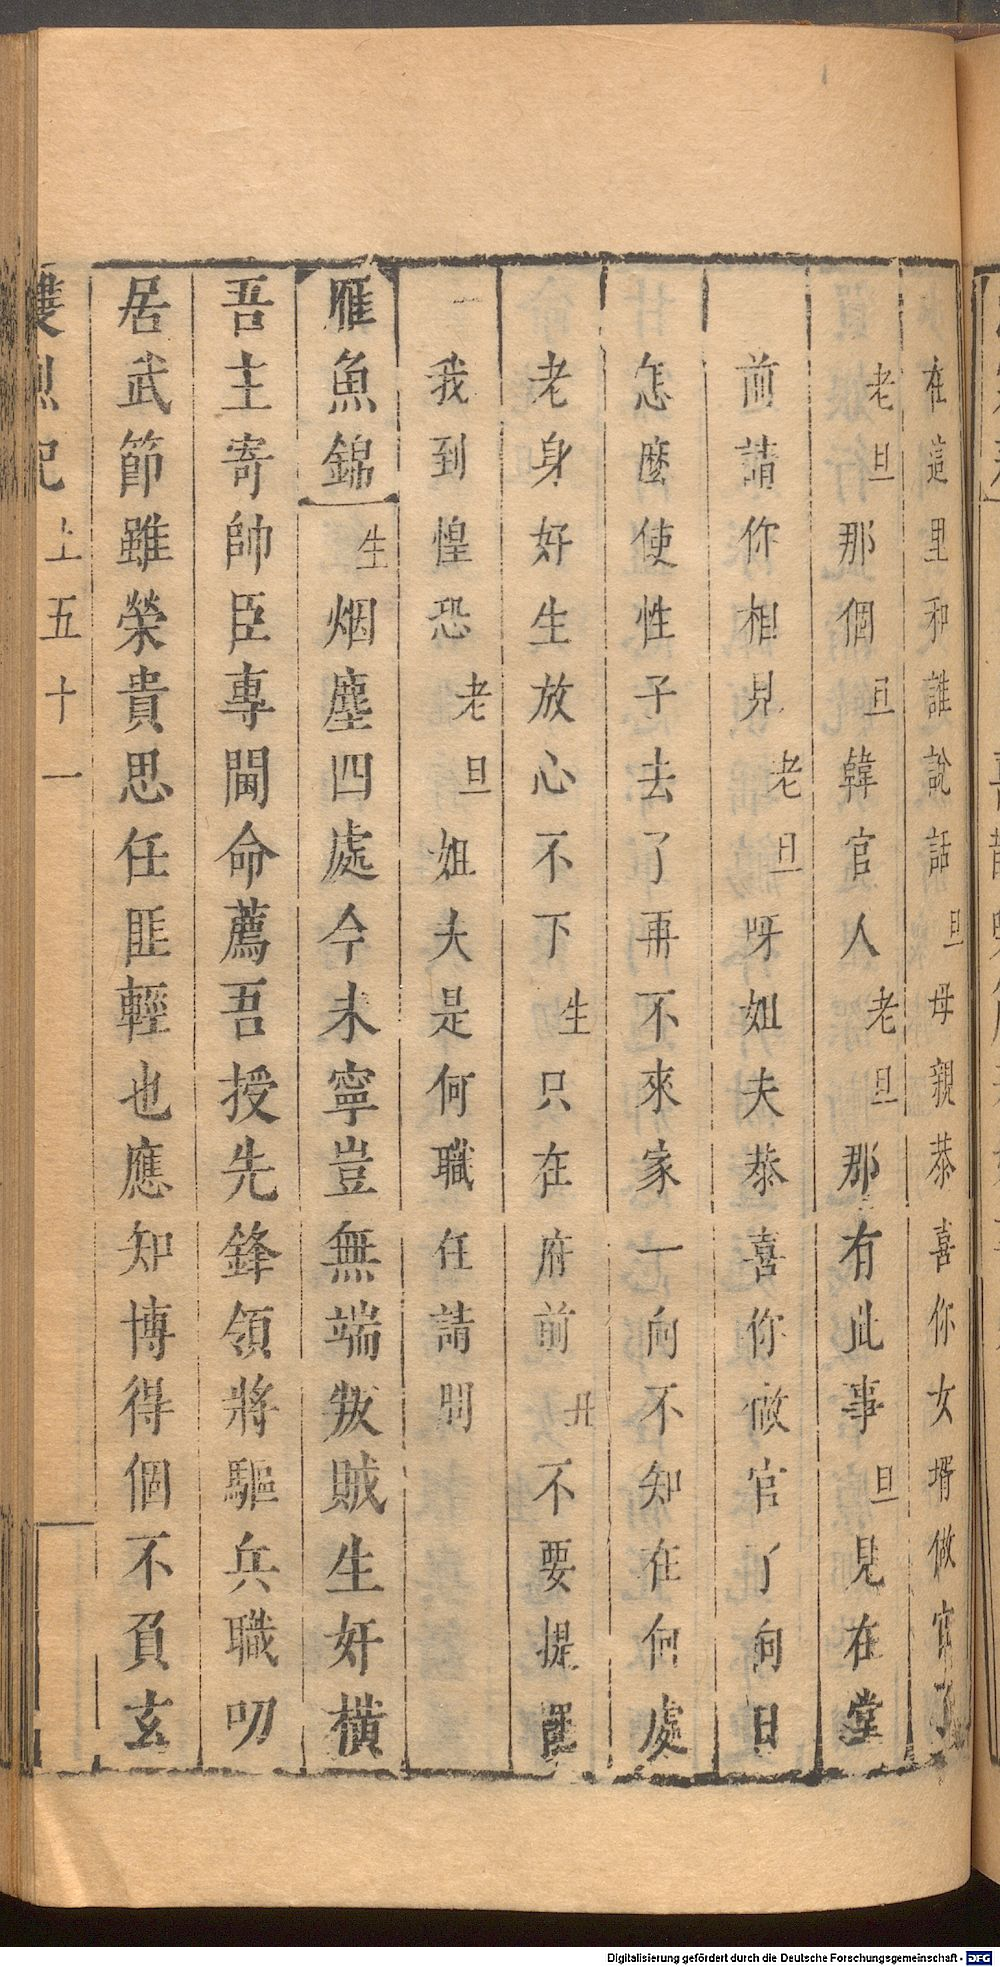 在這里和誰說話旦母親恭喜你女壻做官了
老旦那個旦韓官人老旦那有此事旦見在堂
前請你相見老旦呀姐夫恭喜你做官了向日
怎麼使性子去了再不來家一向不知在何處
老身好生放心不下生只在府前丑不要提
我到惶恐老旦姐夫是何職任請問
雁魚錦生烟塵四處今未寧豈無端叛賊生奸橫
吾主寄帥臣專閫命薦吾授先鋒領將驅兵職叨
居武節雖榮貴思任匪輕也應知博得個不負玄
雙烈記 上 五十一
Digitalisierung gefördert durch die Deutsche Forschungsgemeinschaft - DFG